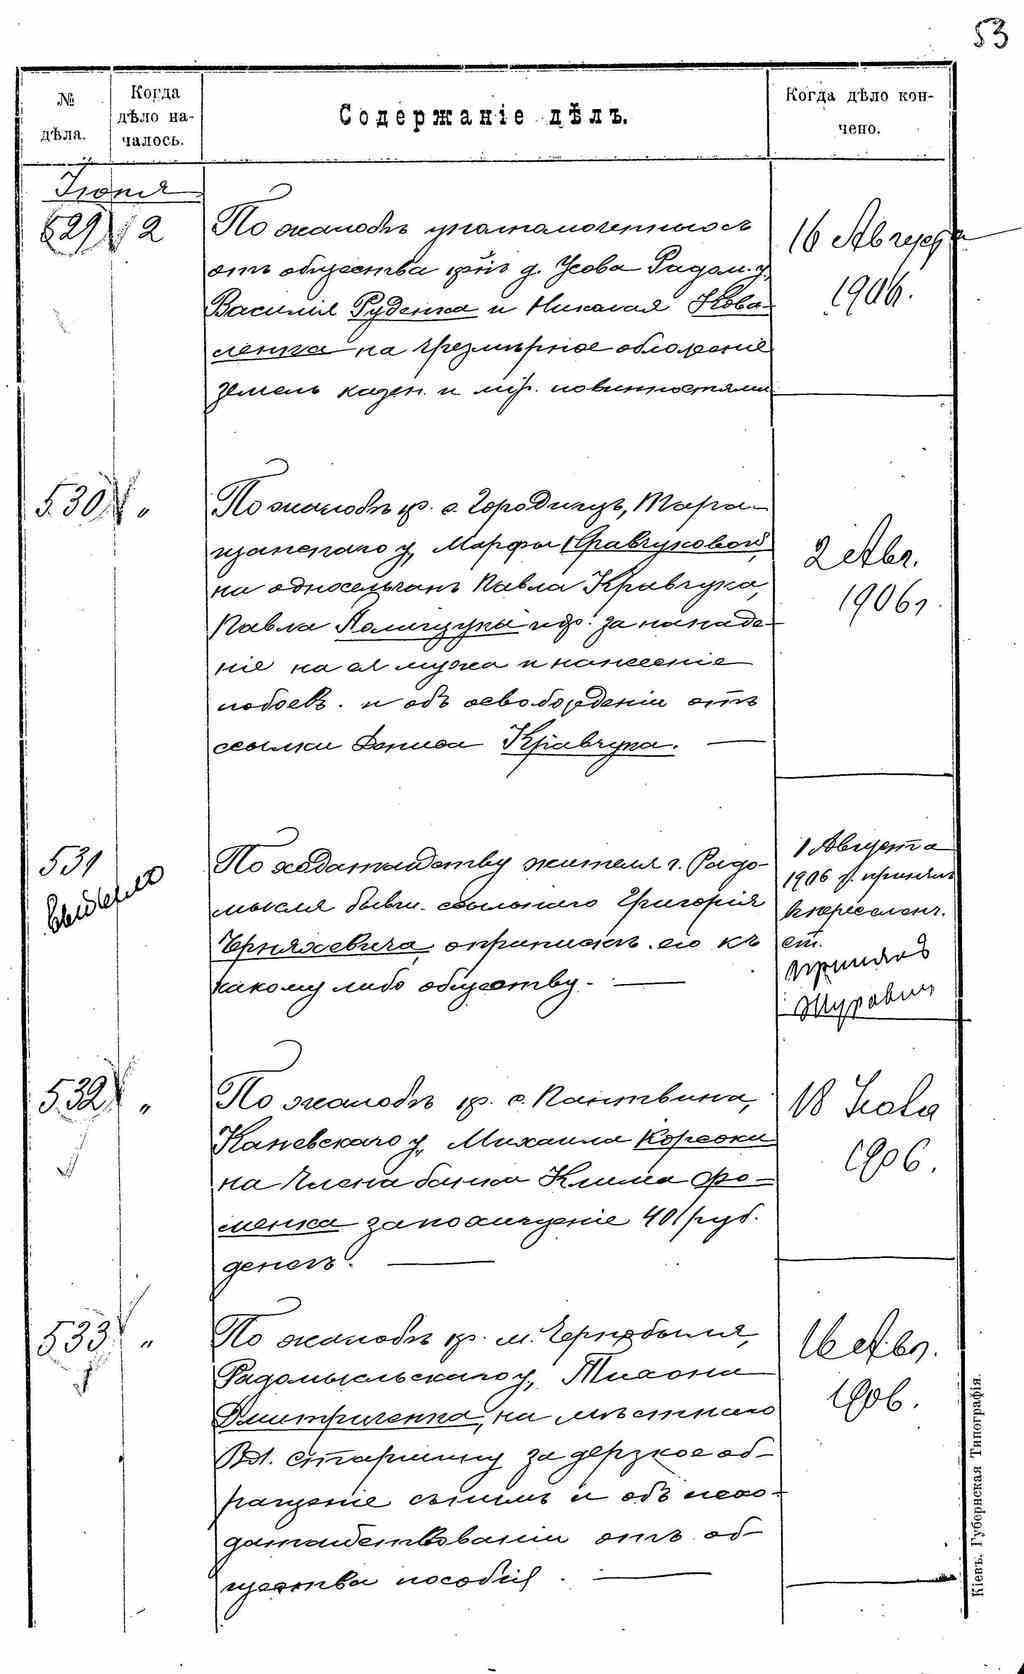 53
№ дѣла.
Когда дѣло на-
чалось.
Содержаніе дѣлъ.
Когда дѣло кон-
чено.
Іюня
529 2
По жалобѣ уполномоченныхъ
отъ общества д. Усова Радом. у.
Василія Рудѣнка и Николая Кова-
ленка на чрезмѣрное обложеніе
земель казен. и мір. повинностями
16 Августа
1906.
530 "
По жалобѣ кр. с. Городища, Тара-
щанскаго у., Марфы Кравчуковой
на односельчанъ Павла Кравчука,
Павла и др. за нападе-
ніе на ея мужа и нанесеніе
побоевъ. и объ освобожденіи отъ
ссылки Дениса Кравчука. —
2 Авг.
1906 г.
531
По ходатайству жителя г. Радо-
мысля бывш. ссыльнаго Григорія
Черняхевича, о припискѣ его къ
какому либо обществу. —
1 Августа
1906 г.
ст.
532 "
По жалобѣ кр. с.
Каневскаго у., Михаила Корсоки
на Члена банка Клима Фо-
менка за похищеніе 40 руб.
денегъ. —
18
1906.
533 "
По жалобѣ кр. м. Чернобыля,
Радомысльскаго у., Тихона
Дмитриченка, на мѣстнаго
Вл. старшину за дерзкое об-
ращеніе съ нимъ и объ исхо-
датайствованіи отъ об-
щества пособія. —
16 Авг.
1906.
Кіевъ. Губернская Типографія.